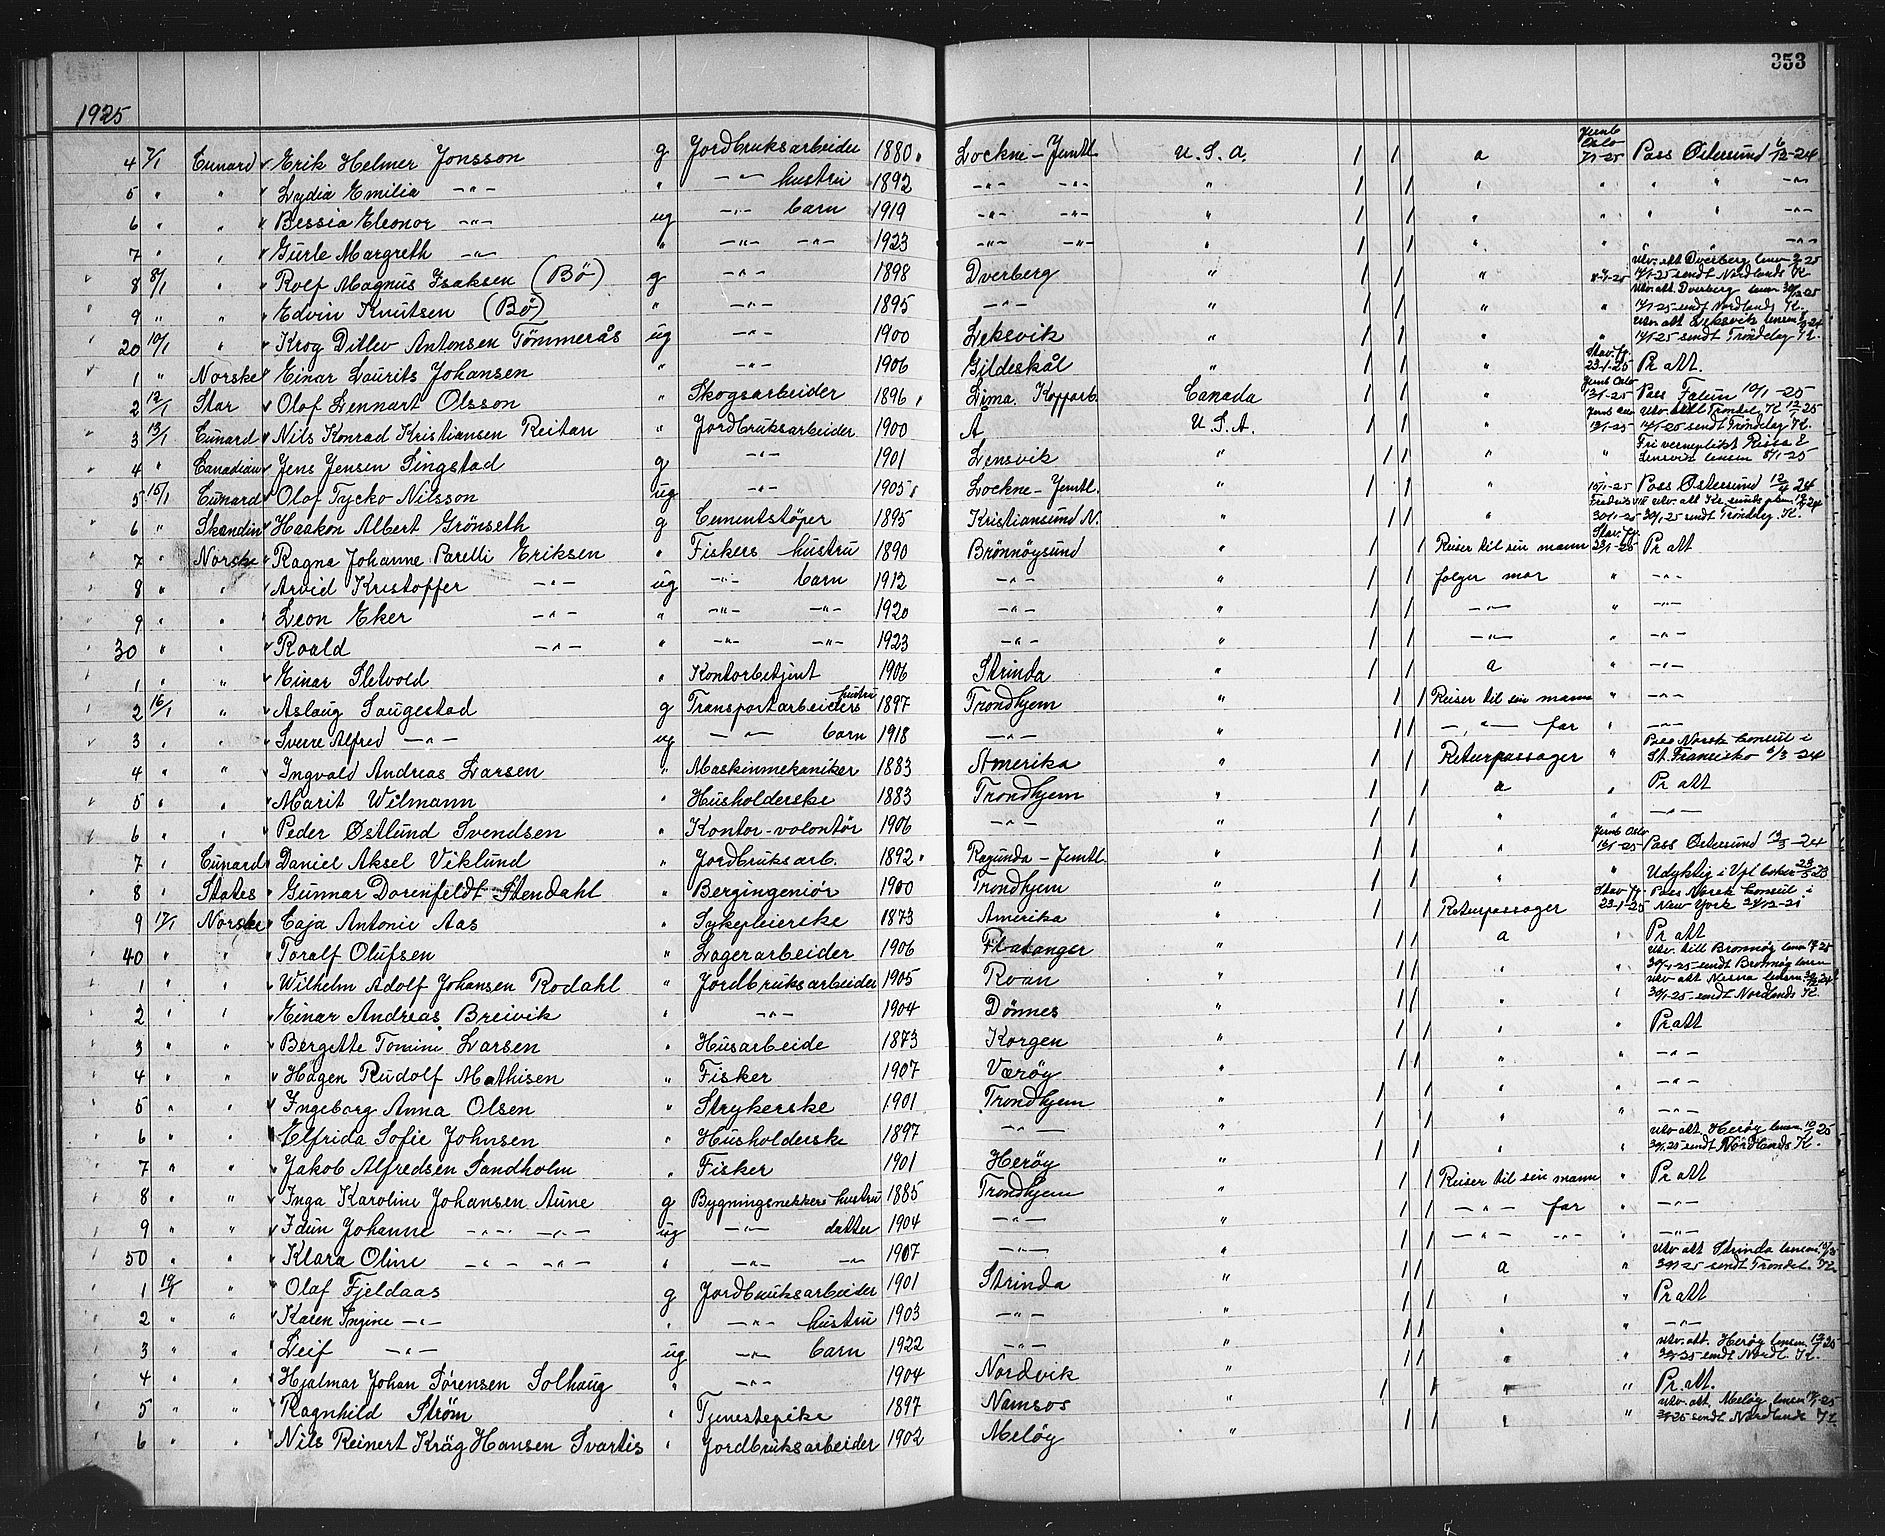 353
1925
4 7/1 Cunard Erik Helmer Jonsson g Jordbruksarbeider 1880 Lockne - Jemtl. U.S.A. / / a Jernb Oslo 7/1-25 Pass Østersund 6/12-24
5 " " Lydia Emilia -"- " -"- hustru 1892 -"- -"- " / / " " " " -"-
6 " " Bessia Eleonor -"- ug -"- barn 1919 -"- -"- " / / " " " " -"-
7 " " Gurle Margreth -"- " -"- -"- 1923 -"- -"- " / / " " -"-
8 8/1 " Rolf Magnus Isaksen (Bö) g -"- 1898 Dverberg " / / " utv. att Dverberg lensm 14/1-25 sendt Nordlands K
9 " " Edvin Knutsen (Bö) " -"- 1895 -"- " / / " " utv. att. Dverberg lensm 30/12-25 14/1-25 sendt Nordlands K.
20 10/1 " Krog Ditlev Antonsen Tömmerås ug -"- 1900 Leksvik " / / " " utv att Leksvik lensm 14/1-25 sendt Tröndelag K.
1 " Norske Einar Laurits Johansen " -"- 1906 Gildeskål " / / " Stav. fj. 23-1-25 Pr att.
2 12/1 Star Olof Lennart Olsson " Skogsarbeider 1896 Lima. Kopparb. Canada / / " Jernb Oslo 13/1-25 Pass Falun 10/1-25
3 13/1 Cunard Nils Konrad Kristiansen Reitan " Jordbruksarbeider 1900 Å U.S.A. / / " Jernb Oslo utv till Tröndel K 12/1 25 14/1-25 sendt Tröndelag K.
4 " Canadian Jens Jensen Singstad g -"- 1901 Lensvik " / / " " Fri verneplikt Rissa & Lensvik lensm 8/1-25
5 15/1 Cunard Olof Tycko Nilsson ug -"- 1905 Lockne - Jemtl. " / / " 15/1-25 Pass Østersund 12/4 24
6 " Skandin Haakon Albert Grönseth g Cementstöper 1895 Kristiansund N. / / " Fredrik VIII 30/1-25 30/1-25 sendt Tröndelag K.
7 " Norske Ragna Johanne Parelli Eriksen " Fiskers hustru 1890 Brönnöysund " / / Reiser til sin mann Stav. fj. 23/1-25 Pr att
8 " " Arvid Kristoffer -"- ug -"- barn 1912 -"- " / / følger mor " -"-
9 " " Leon Eker -"- " -"- -"- 1920 -"- " / / -"- " -"-
30 " " Roald -"- " -"- -"- 1923 -"- " / / -"- " -"-
1 " " Einar Sletvold " Kontorbetjent 1906 Strinda " / / a " -"-
2 16/1 " Aslaug Saugestad g Transportarbeiders hustru 1897 Trondhjem " / / Reiser til sin mann " -"-
3 " " Sverre Alfred -"- ug -"- barn 1918 -"- " / / -"- far " -"-
4 " " Ingvald Andreas Larsen " Maskinmekaniker 1883 Amerika " / / Returpassager " Pass Norsk konsul i St. Fransisko 6/3-24
5 " " Marit Wilmann " Husholderske 1883 Trondhjem " / / a " Pr att
6 " " Peder Østlund Svendsen " Kontor-volontör 1906 -"- " / / " " -"-
7 " Cunard Daniel Aksel Viklund " Jordbruksarb. 1892 Ragunda - Jemtl. " / / " Jernb Oslo 16/1-25 Pass Østersund 13/3-24
8 " States Gunnar Dorenfeldt Stendahl " Bergingeniör 1900 Trondhjem " / / " " Udyktig i Vpl boken 23/5 23
9 17/1 Norske Caja Antonie Aas " Sykepleierske 1873 Amerika " / / Returpassager Stav. fj. 23-1-25 Pass Norsk konsul i New York
40 " " Toralf Olufsen " Lagerarbeider 1906 Flatanger " / / a " Pr att
1 " " Wilhelm Adolf Johansen Rodahl " Jordbruksarbeider 1905 Roan " / / " utv. till Brönnöy lensm 30/1-25 sendt Brönnöy lensm
2 " " Einar Andreas Breivik " -"- 1904 Dönnes " / / " " utv att Nesna lensm 30/1-25 sendt Nordlands K.
3 " " Bergitte Tomine Larsen " Husarbeide 1873 Korgen " / / " " Pr att
4 " " Hagen Rudolf Mathisen " Fisker 1907 Værøy " / / " " -"-
5 " " Ingeborg Anna Olsen " Strykerske 1901 Trondhjem " / / " " -"-
6 " " Elfrida Sofie Johnsen " Husholderske 1897 -"- " / / " " -"-
7 " " Jakob Alfredsen Sandholm " Fisker 1901 Herøy " / / " " utv att Herøy lensm 10/1 25 30/1-25 sendt Nordlands K.
8 " " Inga Karoline Johansen Aune g Bygningssnekkers hustru 1885 Trondhjem " / / Reiser til sin mann " Pr att
9 " " Idun Johanne -"- -"- ug -"- datter 1904 -"- " / / -"- far " -"-
50 " " Klara Oline -"- -"- " -"- -"- 1907 -"- " / / -"- -"- " -"-
1 19/1 " Olaf Fjeldaas g Jordbruksarbeider 1901 Strinda " / / a " utv att Strinda lensm 30/1-25 sendt Tröndel. K.
2 " " Karen Ingine -"- " -"- hustru 1903 -"- " / / " " Pr att
3 " " Leif -"- ug -"- barn 1922 -"- " / / " " -"-
4 " " Hjalmar Johan Sørensen Solhaug " -"- 1904 Nordvik " / / " " utv. att. Herøy lensm 30/1-25 sendt Nordl. K.
5 " " Ragnhild Strøm " Tjenestepike 1897 Namsos " / / " " Pr. att.
6 " " Nils Reinert Kråg Hansen Svartis " Jordbruksarbeider 1902 Meløy " / / " " utv. att. Meløy lensm sendt Nordlands K